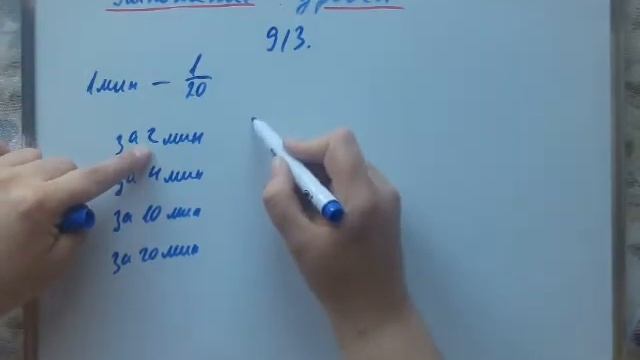 913.
1 мин — 1/20
за 2 мин
за 4 мин
за 10 мин
за 20 мин